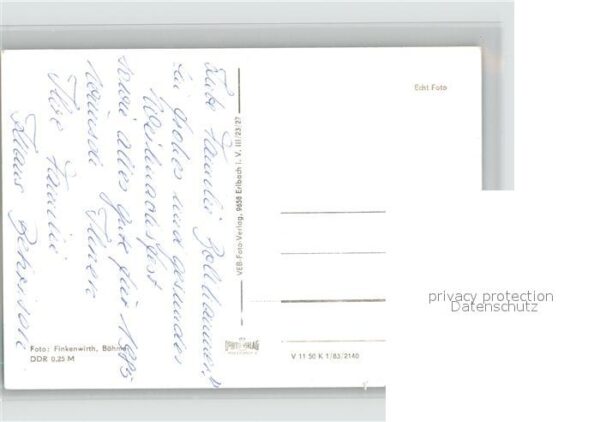 Liebe Familie
Ein frohes und gesundes
Weihnachtsfest
sowie alles Gute für 1985
wünscht Ihnen
Ihre Familie
Klaus
Echt Foto
VEB-Foto-Verlag, 9658 Erlbach i. V. III/23/27
Foto: Finkenwirth, Böhme
DDR 0,25 M
V 11 50 K 1/83/2140
privacy protection
Datenschutz